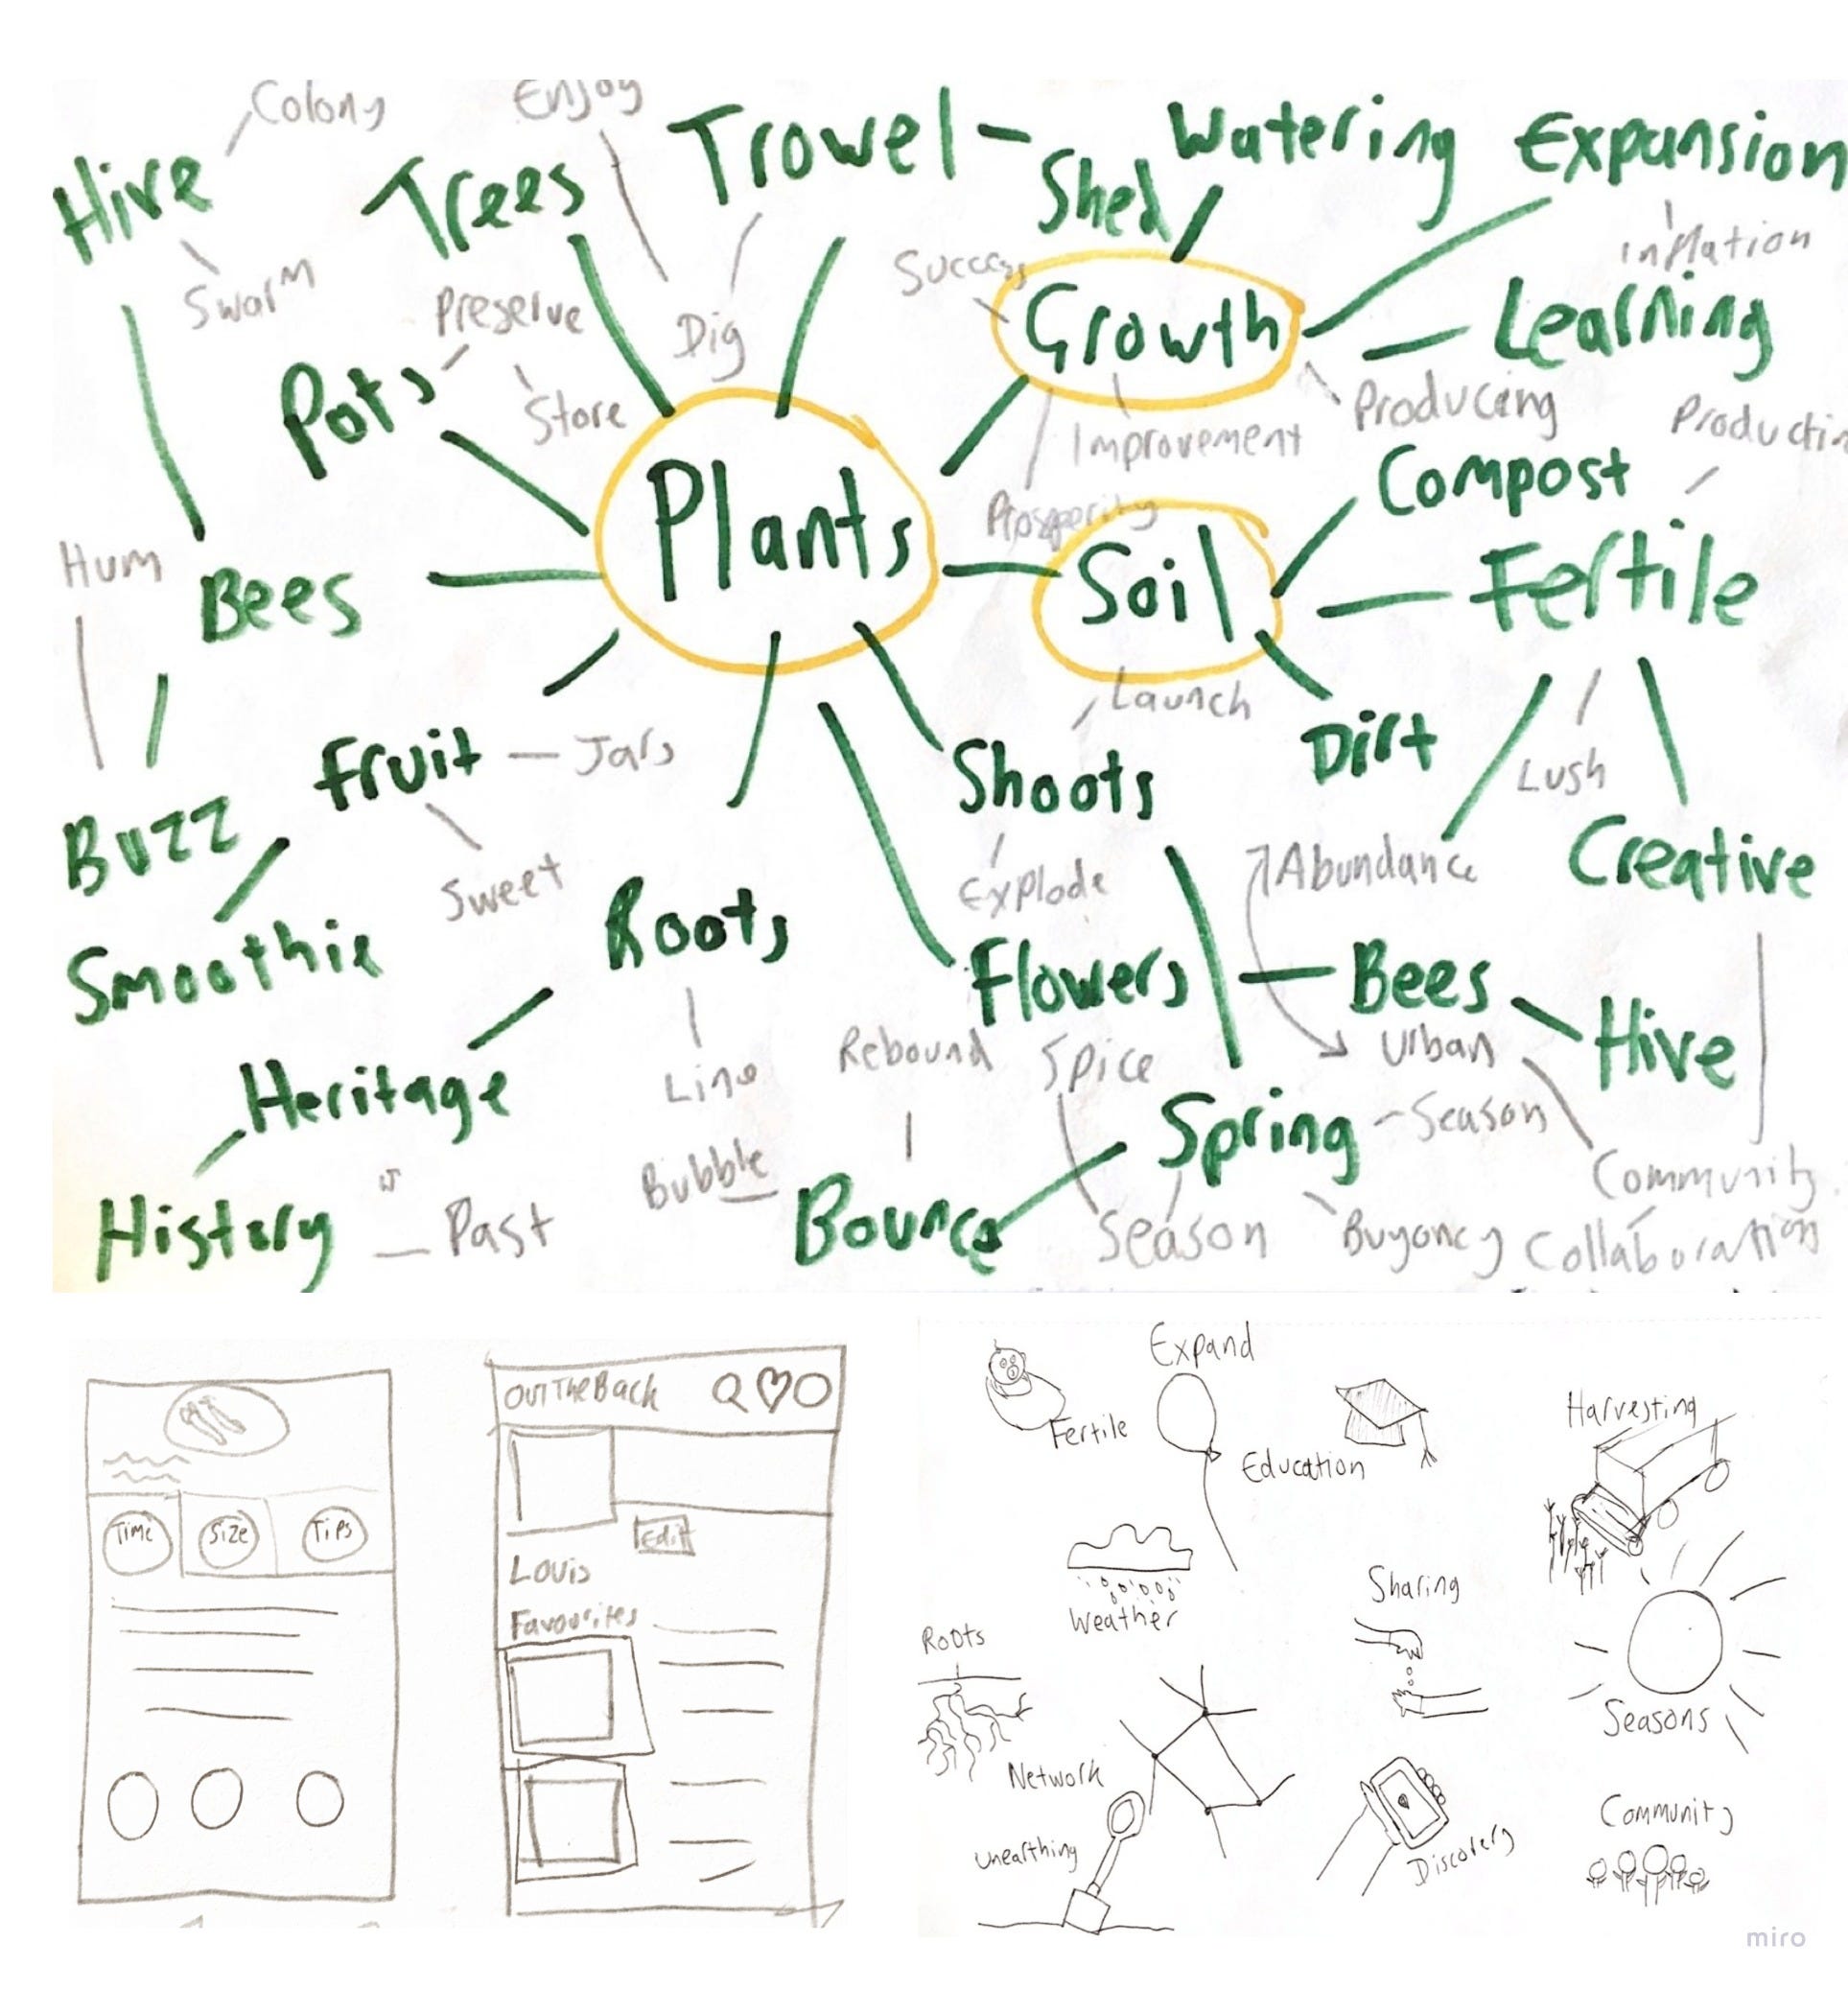 Colony
Enjoy
Trowel
Watering
Expansion
Hive
Trees
Shed
Inflation
Swarm
Preserve
Success
Dig
Growth
Learning
Pots
Store
Improvement
Producing
Productin
Prosperity
Compost
Plants
Hum
Bees
Soil
Fertile
Launch
Fruit
Jars
Shoots
Dirt
Lush
Buzz
Sweet
Explode
Abundance
Creative
Smoothie
Roots
Flowers
Bees
Hive
Heritage
Line
Rebound
Spice
Urban
Spring
Season
Bubble
Community
History
Past
Bounce
Season
Buyoncy
Collaboration
OUTTheBack
Time
Size
Tips
Edit
Louis
Favourites
Expand
Fertile
Education
Harvesting
Weather
Sharing
Roots
Seasons
Network
Unearthing
Discovery
Community
miro